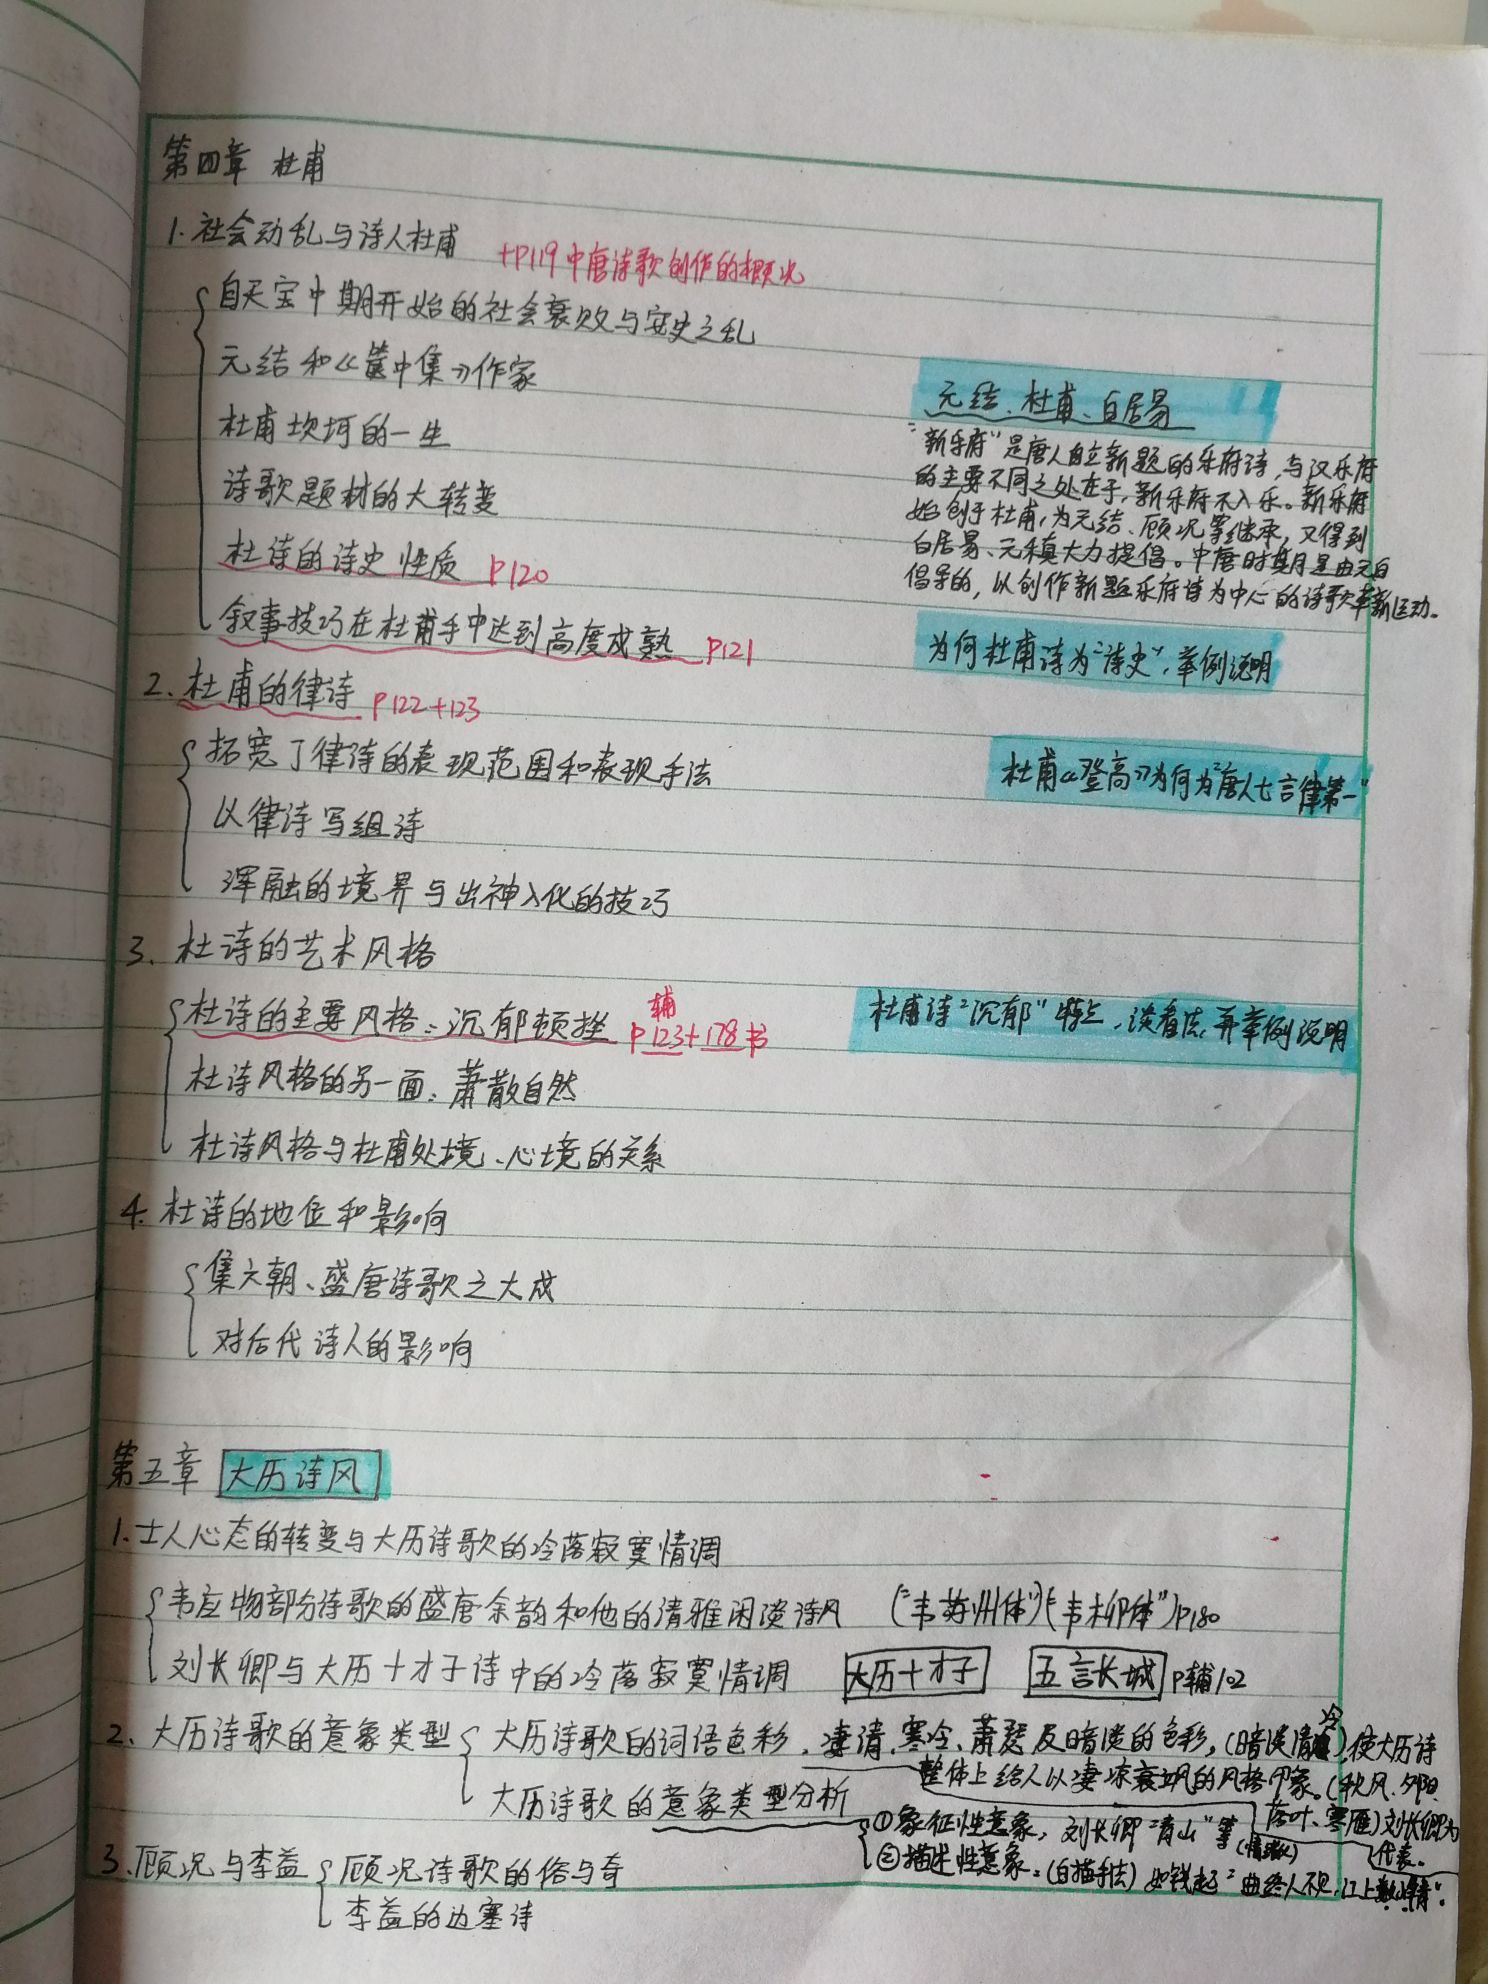 第四章 杜甫
1. 社会动乱与诗人杜甫 +P119 中唐诗歌创作的概况
自天宝中期开始的社会衰败与安史之乱
元结和《箧中集》作家
杜甫坎坷的一生
诗歌题材的大转变
杜诗的诗史性质 P120
叙事技巧在杜甫手中达到高度成熟 P121
元结、杜甫、白居易
"新乐府"是唐人自立新题的乐府诗,与汉乐府
的主要不同之处在于,新乐府不入乐。新乐府
始创于杜甫,为元结、顾况等继承,又得到
白居易、元稹大力提倡。中唐时期是由元白
倡导的,以创作新题乐府诗为中心的诗歌革新运动。
为何杜甫诗为"诗史",举例说明
2. 杜甫的律诗 P122+123
拓宽了律诗的表现范围和表现手法
以律诗写组诗
浑融的境界与出神入化的技巧
杜甫《登高》为何为"唐人七言律第一"
3. 杜诗的艺术风格
杜诗的主要风格:沉郁顿挫 辅P123+178书
杜诗风格的另一面:萧散自然
杜诗风格与杜甫处境、心境的关系
杜甫诗"沉郁"特点,谈看法,再举例说明
4. 杜诗的地位和影响
集六朝、盛唐诗歌之大成
对后代诗人的影响
第五章 大历诗风
1. 士人心态的转变与大历诗歌的冷落寂寞情调
韦应物部分诗歌的盛唐余韵和他的清雅闲淡诗风 ("韦苏州体")("韦柳体")P180
刘长卿与大历十才子诗中的冷落寂寞情调 大历十才子 五言长城 P辅102
2. 大历诗歌的意象类型
大历诗歌的词语色彩,凄清、寒冷、萧瑟及暗淡的色彩,(暗淡清冷),使大历诗
整体上给人以凄凉衰飒的风格印象。(秋风、夕阳、
落叶、寒雁)刘长卿为
代表。
大历诗歌的意象类型分析
①象征性意象,刘长卿"青山"等
②描述性意象:(白描手法)如钱起"曲终人不见,江上数峰青"。
3. 顾况与李益
顾况诗歌的俗与奇
李益的边塞诗